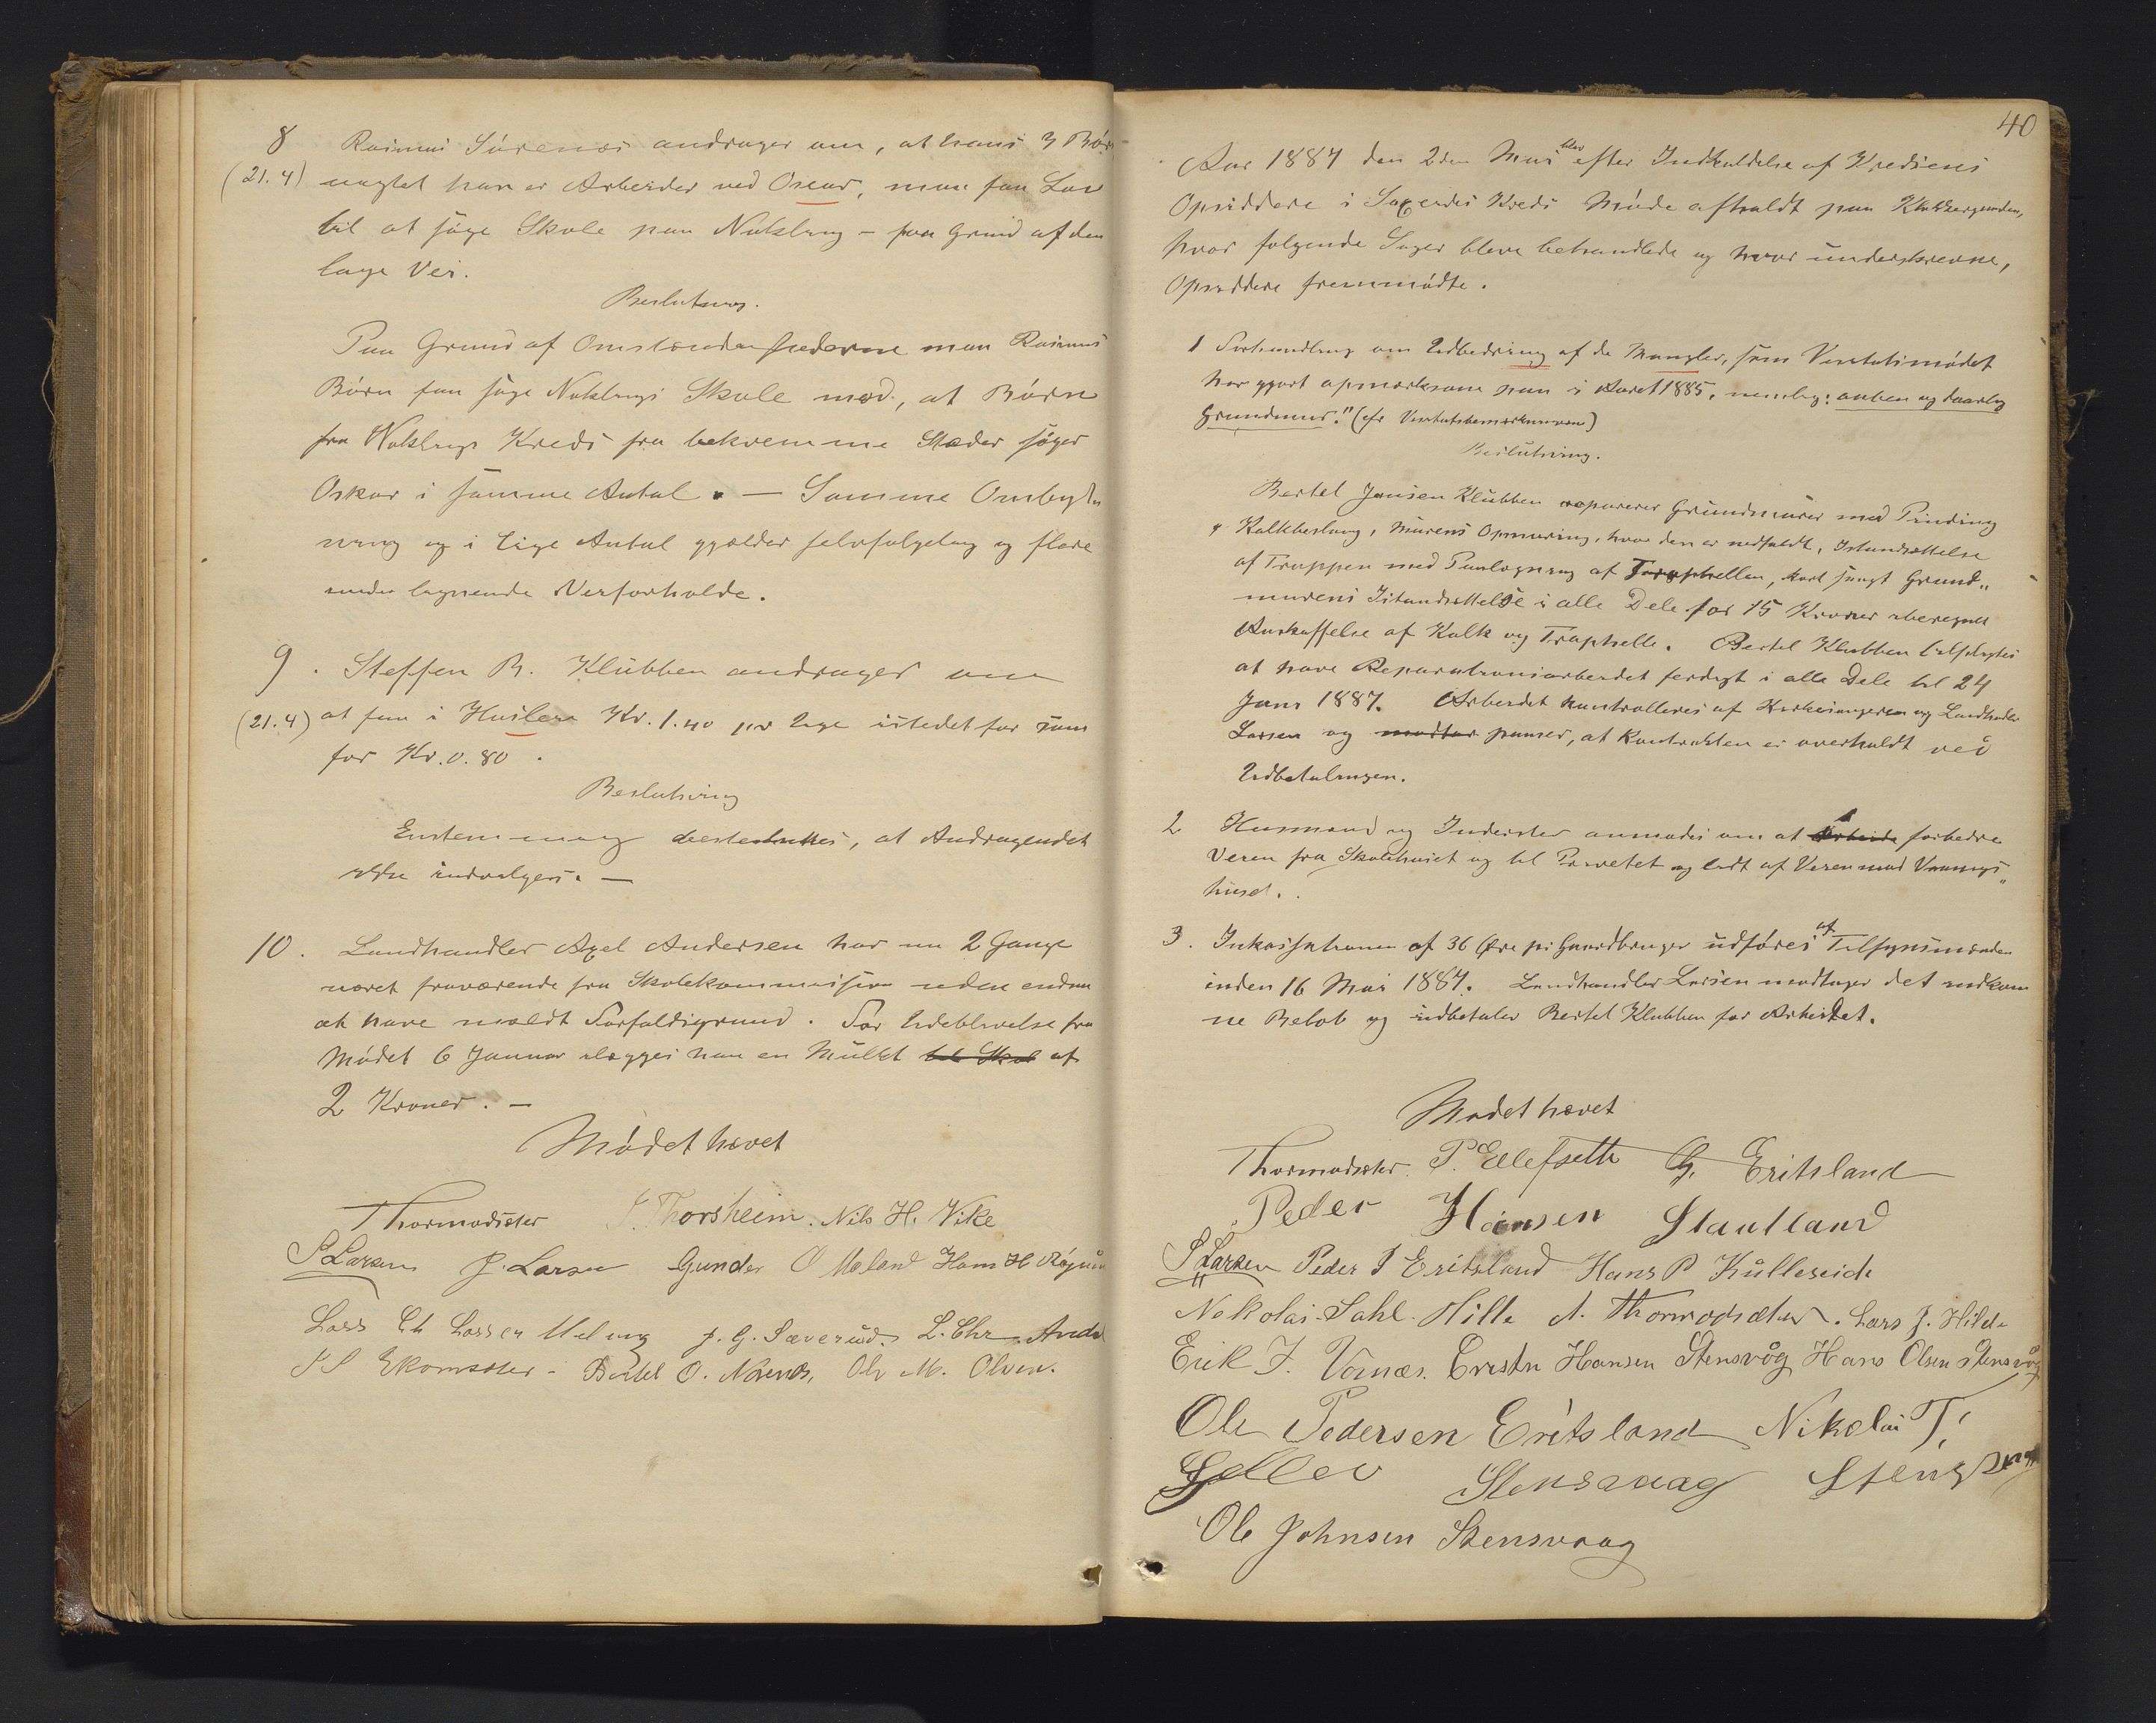 8 Rasmus Sörenes andrager om, at hans 3 Bör
(21.4) uagtet han er Arbeider ved Oscar, maa faa Lov
til at söge Skole paa Nuklung - paa Grund af den
lage Vei.
Beslutning.
Paa Grund af Omstændighederne maa Rasmus
Börn faa söge Skole mod, at Börn
fra Kreds fra bekvemme Steder söger
Oskar i samme Antal. — Samme Ombyt
ning og i lige Antal gjælder selvfølgelig og flere
under lignende Veiforholde.
9. Steffen B. Klubben andrager om
(21.4) at faa i Huslere Kr. 1.40 pr Uge istedetfor som
för Kr. 0.80.
Beslutning
Enstemmig besluttes, at Andragendet
ikke indvilges. —
10. Landhandler Axel Andersen har nu 2 Gange
været fraværende fra Skolekommission uden endnu
at have meldt Forfaldsgrund. For Udeblivelse fra
Mödet 6 Januar ilægges han en Mulkt til Skol af
2 Kroner. —
Mödet hævet
Thormodsæter J. Thorsheim. Nils H. Vike
S Larsen J. Larsen Gunder O Meland Hans H
Lars Ch Larsen J. G. Sæverud. L. Chr. Ande
Ekornsæter - Bertel O. Nörenes, Ole M. Olsen.
40
Aar 1887 den 2den Mai blev efter Indkaldelse af Kredsens
Opsiddere i Kreds Möde afholdt paa Klokkergaarden,
hvor følgende Sager bleve behandlede og hvor underskrevne,
Opsiddere fremmödte.
1 Forhandling om Udbedring af de Mangler, som Visitatsmödet
har gjort opmærksom paa i Aaret 1885, nemlig: aaben og daarlig
Grundmur." (cfr Visitatsbemærkningen)
Beslutning.
Bertel Jansen Klubben reparerer Grundmuren med Pinding
og Kalkbeslag, Murens Opmuring, hvor den er nedfaldt, Istandsættelse
af Trappen med Paalægning af Traphellen, kort sagt Grund„
murens Istandsættelse i alle Dele for 15 Kroner iberegnet
Anskaffelse af Kalk og Traphelle. Bertel Klubben tilpligtes
at have Reparationsarbeidet færdigt i alle Dele til 24
Juni 1887. Arbeidet kontrolleres af Kirkesangeren og Landhandler
Larsen og modtar passer, at Kontrakten er overholdt ved
Udbetalingen.
2 Husmænd og Inderster anmodes om at Arbeide forbedre
Veien fra Skolehuset og til Privetet og lidt af Veien mod Vaanings„
huset.
3. Inkassationen af 36 Øre pr Gaardbruger udföres af Tilsynsmanden
inden 16 Mai 1887. Landhandler Larsen modtager det indkom
ne Beløb og udbetaler Bertel Klubben for Arbeidet.
Mødet hævet
Thormodsæter. P. Ellefsæth G. Eritsland
Peder Hansen Stautland
S Larsen Peder J Eritsland Hans P Kulleseide
Nikolai Dahl Hille A. Thormodsæter. Lars J. Hilde
Erik J. Vornæs. Cristn Hansen Stensvög Hans Olsen Stensvög
Ole Pedersen Eritsland Nikolai T.
Stensvaag
Ole Johnsen Stensvaag